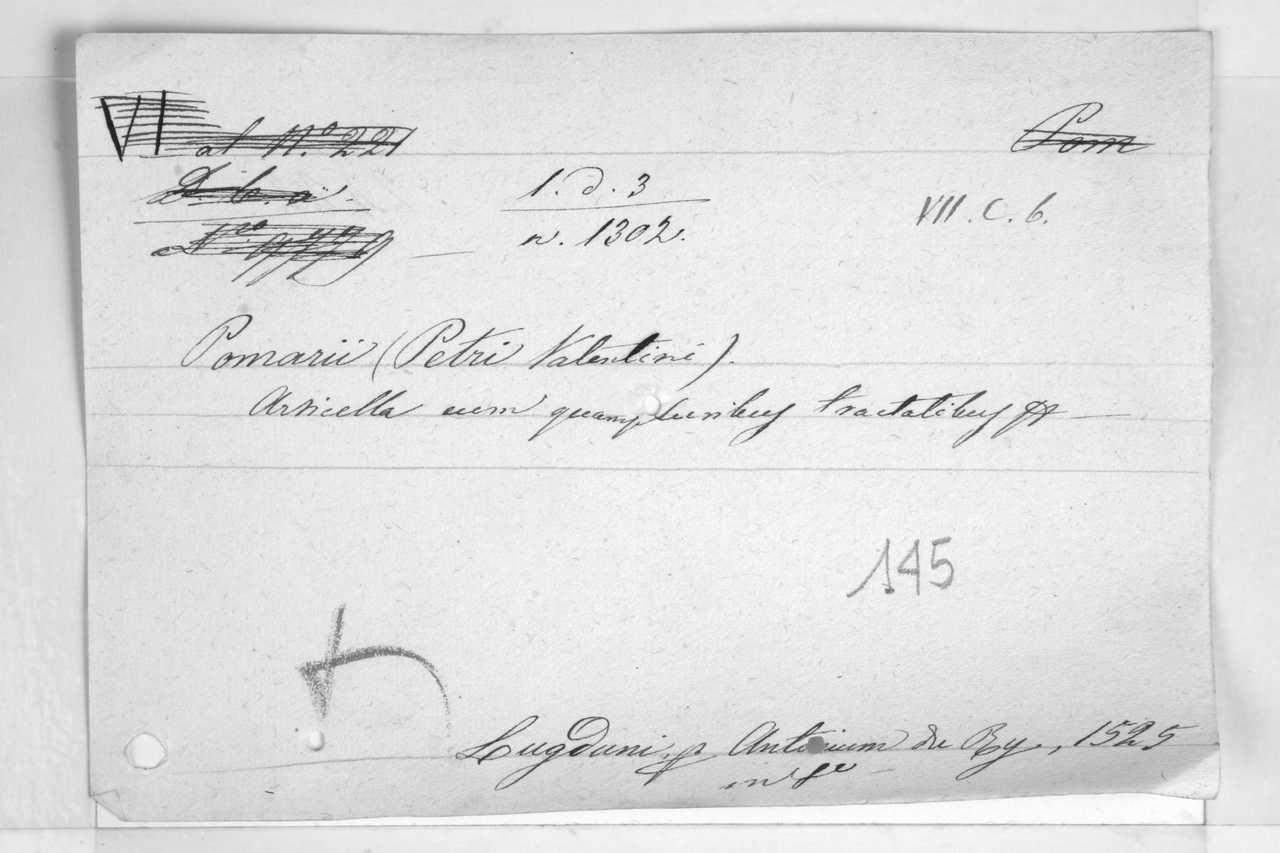 VI al N.º 221
Pom
D. b. a.
1. d. 3
VII. C. b.
n. 1302.
Pomarii (Petri Valentini).
Articella cum quampluribus tractatibus
145
Lugduni, p Antonium du Ry, 1525
in 8º